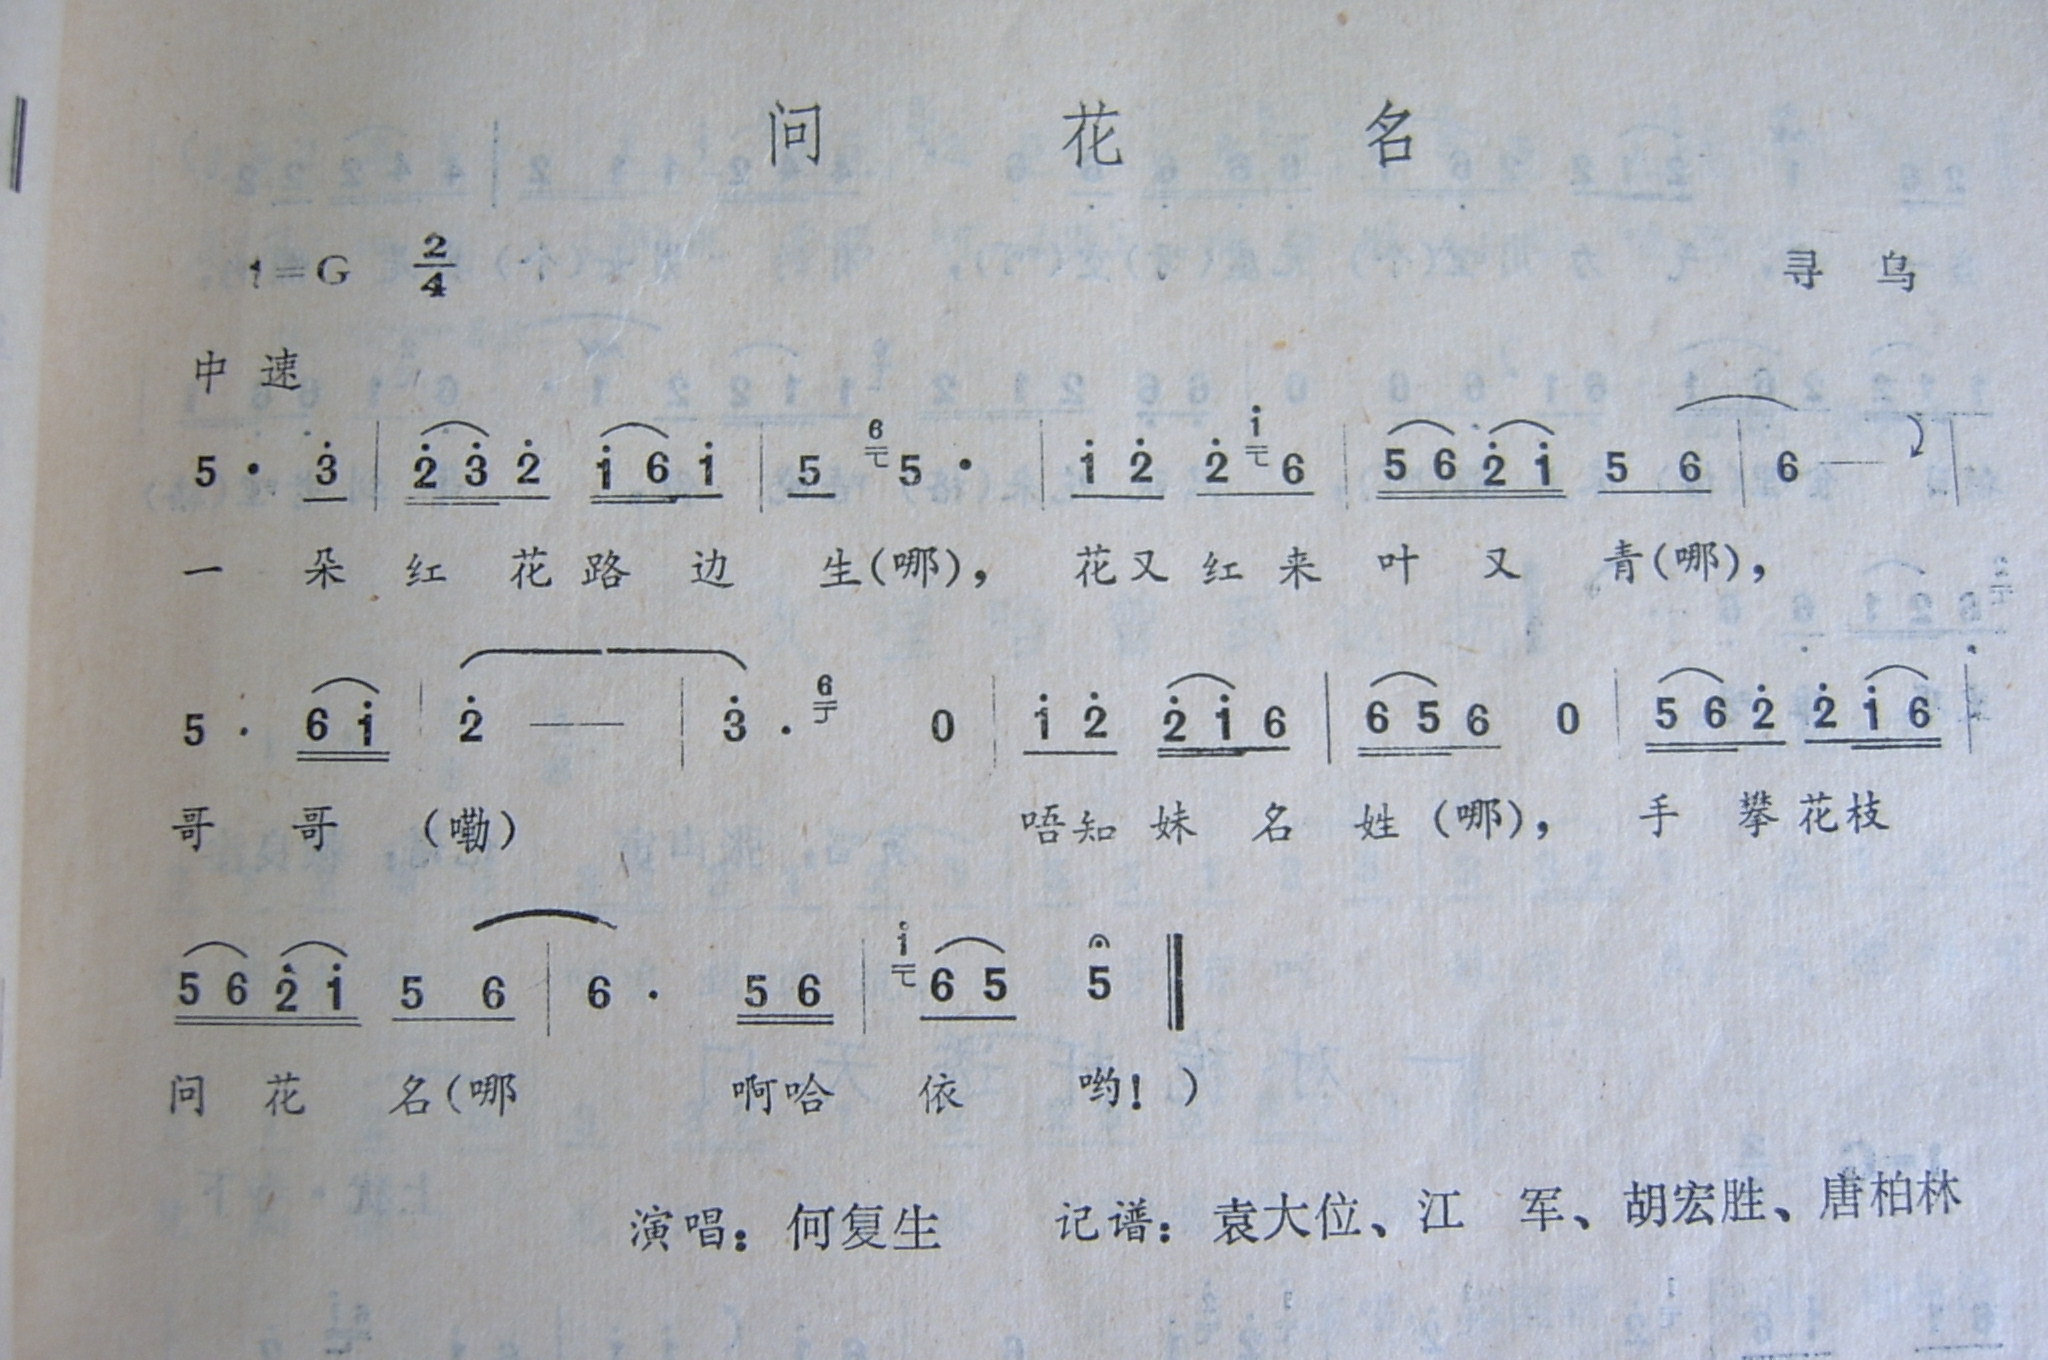 问 花 名
1=G 2/4 寻 乌
中 速
5 · 3̇ | 2̇ 3̇ 2̇ 1̇ 6 1̇ | 5 6 5 · | 1̇ 2̇ 2̇ 1̇ 6 | 5 6 2̇ 1̇ 5 6 | 6 — |
一 朵 红 花 路 边 生(哪), 花又 红 来 叶 又 青(哪),
5 · 6 1̇ | 2̇ — | 3̇ · 6 0 | 1̇ 2̇ 2̇ 1̇ 6 | 6 5 6 0 | 5 6 2̇ 2̇ 1̇ 6 |
哥 哥 (嘞) 唔知 妹 名 姓 (哪), 手 攀 花枝
5 6 2̇ 1̇ 5 6 | 6 · 5 6 | 1̇ 6 5 5 ‖
问 花 名(哪 啊哈 依 哟! )
演唱: 何复生 记谱: 袁大位、江 军、胡宏胜、唐柏林